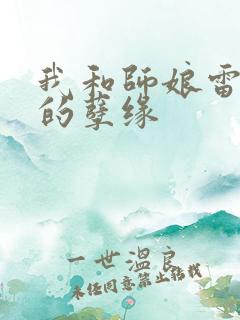 我和師娘雷
的孽缘
一世溫良
未经同意禁止转载